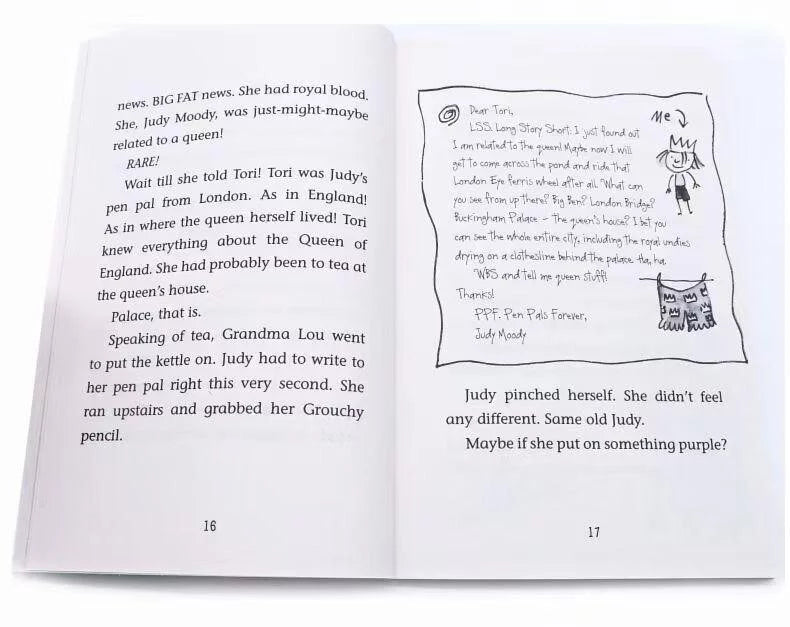 news. BIG FAT news. She had royal blood.
She, Judy Moody, was just-might-maybe
related to a queen!
RARE!
Wait till she told Tori! Tori was Judy's
pen pal from London. As in England!
As in where the queen herself lived! Tori
knew everything about the Queen of
England. She had probably been to tea at
the queen's house.
Palace, that is.
Speaking of tea, Grandma Lou went
to put the kettle on. Judy had to write to
her pen pal right this very second. She
ran upstairs and grabbed her Grouchy
pencil.
16
Dear Tori,
LSS. Long Story Short. I just found out
I am related to the queen! Maybe now I will
get to come across the pond and ride that
London Eye ferris wheel after all. What can
you see from up there? Big Ben? London Bridge?
Buckingham Palace – the queen's house? I bet you
can see the whole entire city, including the royal undies
drying on a clothesline behind the palace. Ha, ha.
WBS and tell me queen stuff!
Thanks!
PPF. Pen Pals Forever,
Judy Moody
Me
Judy pinched herself. She didn't feel
any different. Same old Judy.
Maybe if she put on something purple?
17